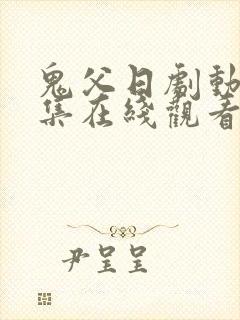 鬼父日劇動
集在綫觀看
尹呈呈